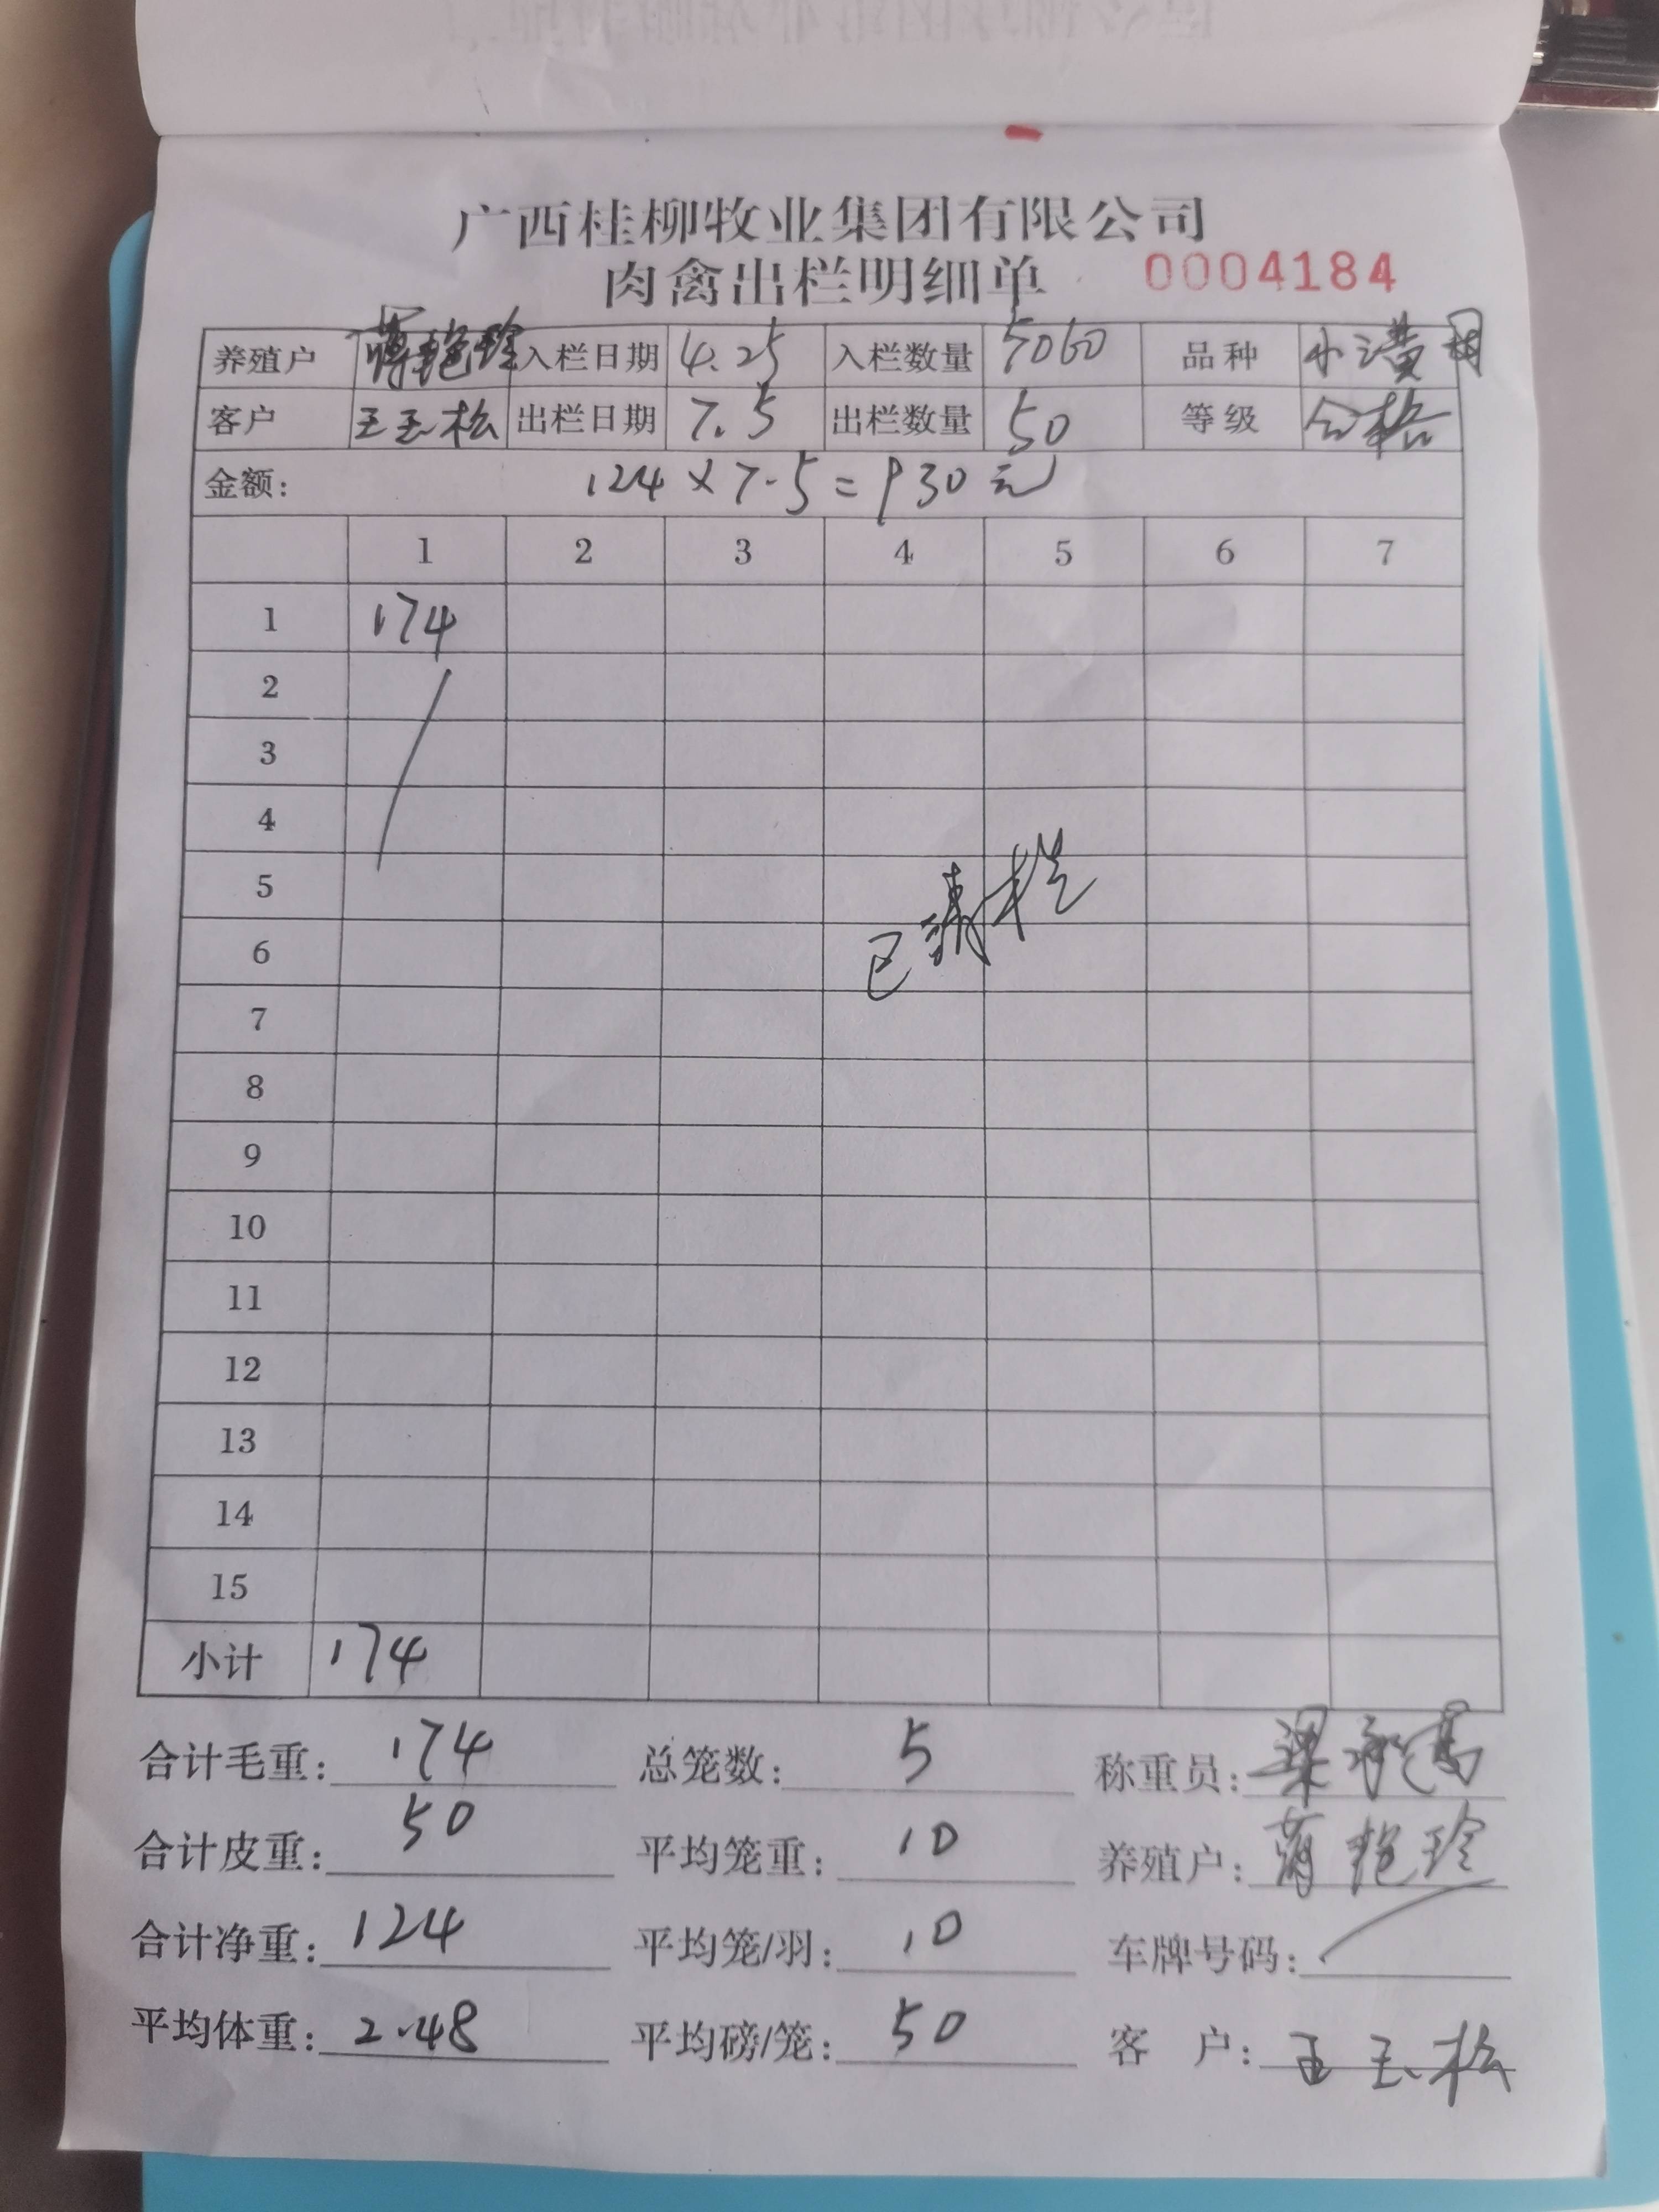 广西桂柳牧业集团有限公司
肉禽出栏明细单 0004184
养殖户 蒋艳玲 入栏日期 4.25 入栏数量 5060 品种 小黄
客户 王玉松 出栏日期 7.5 出栏数量 50 等级 合格
金额: 124×7.5=930元
1 2 3 4 5 6 7
1 174
2
3
4
5
6
已清栏
7
8
9
10
11
12
13
14
15
小计 174
合计毛重: 174 总笼数: 5 称重员: 梁
合计皮重: 50 平均笼重: 10 养殖户: 蒋艳玲
合计净重: 124 平均笼/羽: 10 车牌号码:
平均体重: 2.48 平均磅/笼: 50 客 户: 王玉松